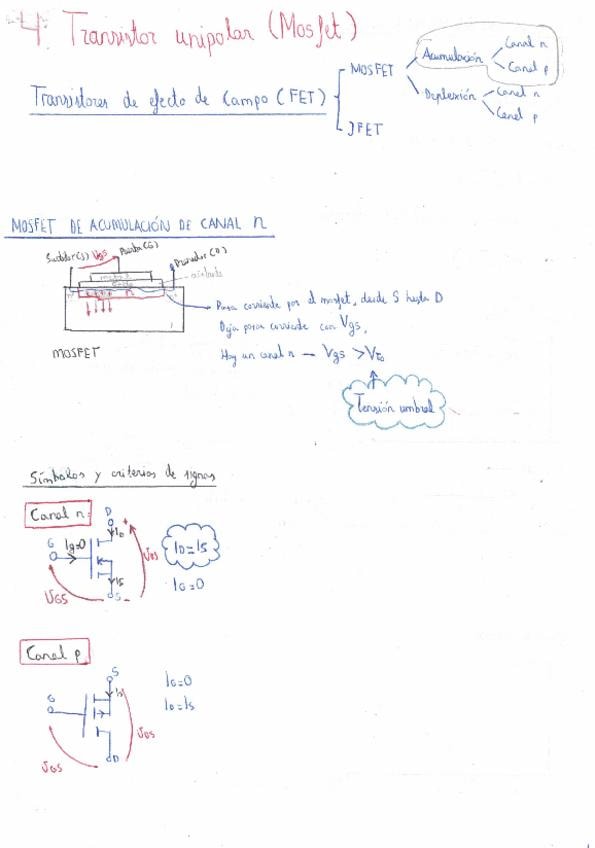 4. Transistor unipolar (Mosfet)
Transistores de efecto de Campo (FET)
MOSFET
Acumulación
Canal n
Canal p
Deplexión
Canal n
Canal p
JFET
MOSFET DE ACUMULACIÓN DE CANAL n
Surtidor (S) Vgs Puerta (G) Drenador (D)
metal
óxido
n
MOSFET
Pasa corriente por el mosfet, desde S hasta D
Deja pasar corriente con Vgs.
Hay un canal n — Vgs > Vto
Tensión umbral
Símbolos y criterios de signos
Canal n:
D
+
ID
G
Ig=0
VDS
IS
VGS
S -
ID=IS
IG=0
Canal p
S
IS
G
VDS
VGS
D
IG=0
ID=IS